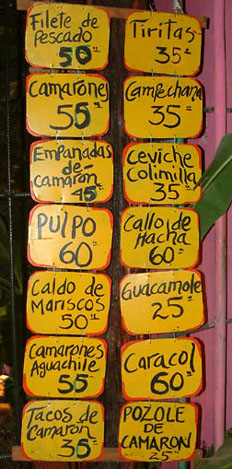 Filete de
Pescado
50
Tiritas
35
Camarones
55
Campechana
35
Empanadas
de
camaron
45
Ceviche
Colimilla
35
PULPO
60
Callo de
Hacha
60
Caldo de
Mariscos
50
Guacamole
25
Camarones
Aguachile
55
Caracol
60
Tacos de
Camaron
35
POZOLE DE
CAMARON
25